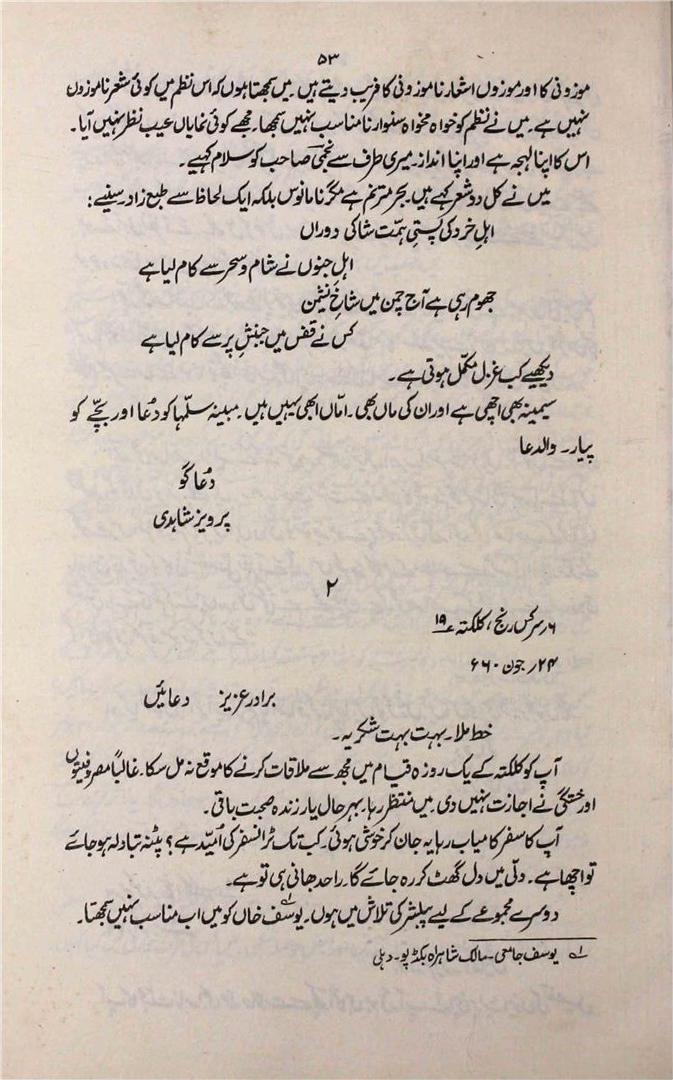 ۵۳
موزونی کا اور موزوں اشعار ناموزونی کا فریب دیتے ہیں۔ میں سمجھتا ہوں کہ اس نظم میں کوئی شعر ناموزوں
نہیں ہے۔ میں نے نظم کو خواہ مخواہ سنوارنا مناسب نہیں سمجھا۔ مجھے کوئی نمایاں عیب نظر نہیں آیا۔
اس کا اپنا لہجہ ہے اور اپنا انداز۔ میری طرف سے نجمی صاحب کو سلام کہیے۔
میں نے کل دو شعر کہے ہیں۔ بحر مترنم ہے مگر نامانوس بلکہ ایک لحاظ سے طبع زاد۔ سنیے:
اہلِ خرد کی پستیِ ہمّت شاکیِ دوراں
اہلِ جنوں نے شام و سحر سے کام لیا ہے
جھوم رہی ہے آج چمن میں شاخِ نشیمن
کس نے قفس میں جنبشِ پر سے کام لیا ہے
دیکھیے کب غزل مکمّل ہوتی ہے۔
سیمینہ بھی اچھی ہے اور ان کی ماں بھی۔ امّاں ابھی یہیں ہیں۔ مبینہ سلّمہا کو دُعا اور بچّے کو
پیار۔ والدعا
دُعا گو
پرویز شاہدی
۲
۶؍ سرکس رینج، کلکتہ ۱۹
۲۴؍ جون ۶۶۰ء
برادر عزیز دعائیں
خط ملا۔ بہت بہت شکریہ۔
آپ کو کلکتہ کے یک روزہ قیام میں مجھ سے ملاقات کرنے کا موقع نہ مل سکا۔ غالباً مصروفیتوں
اور خستگی نے اجازت نہیں دی۔ میں منتظر رہا۔ بہر حال یار زندہ صحبت باقی۔
آپ کا سفر کامیاب رہا یہ جان کر خوشی ہوئی۔ کب تک ٹرانسفر کی اُمیّد ہے؟ پٹنہ تبادلہ ہو جائے
تو اچھا ہے۔ دلّی میں دل گھٹ کر رہ جائے گا۔ راجدھانی ہی تو ہے۔
دوسرے مجموعے کے لیے پبلشر کی تلاش میں ہوں۔ یوسف خاں۱؎ کو میں اب مناسب نہیں سمجھتا۔
۱؎ یوسف جامعی۔ مالک شاہراہ بکڈپو۔ دہلی